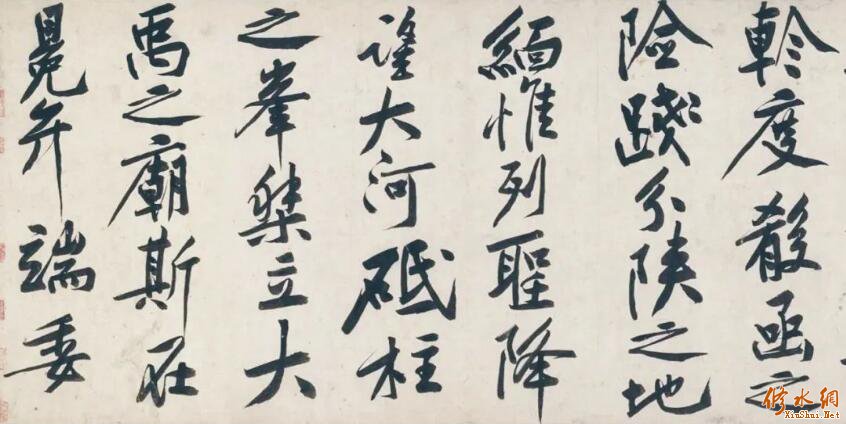 軫度殽函之
險踐分陝之地
緬惟列聖降
望大河砥柱
之峯桀立大
禹之廟斯在
冕弁端委
修水網
XiuShui.Net